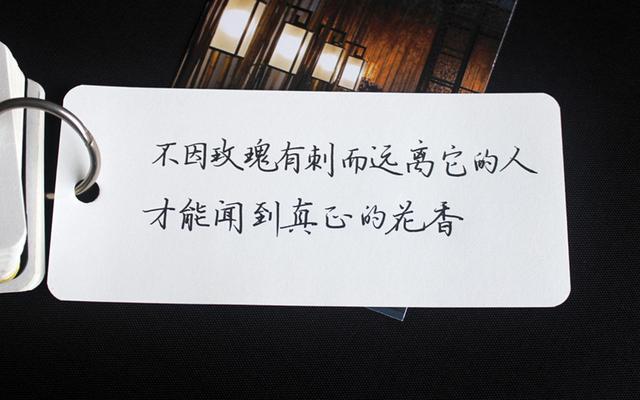 不因玫瑰有刺而远离它的人
才能闻到真正的花香